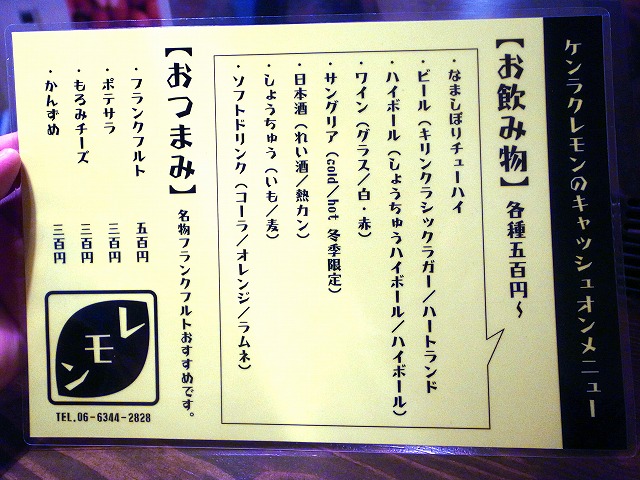 ケンラクレモンのキャッシュオンメニュー
【お飲み物】各種五百円～
・なましぼりチューハイ
・ビール（キリンクラシックラガー／ハートランド
・ハイボール（しょうちゅうハイボール／ハイボール）
・ワイン（グラス／白・赤）
・サングリア（cold／hot 冬季限定）
・日本酒（れい酒／熱カン）
・しょうちゅう（いも／麦）
・ソフトドリンク（コーラ／オレンジ／ラムネ）
【おつまみ】名物フランクフルトおすすめです。
・フランクフルト 五百円
・ポテサラ 三百円
・もろみチーズ 三百円
・かんずめ 三百円
レモン
TEL.06-6344-2828